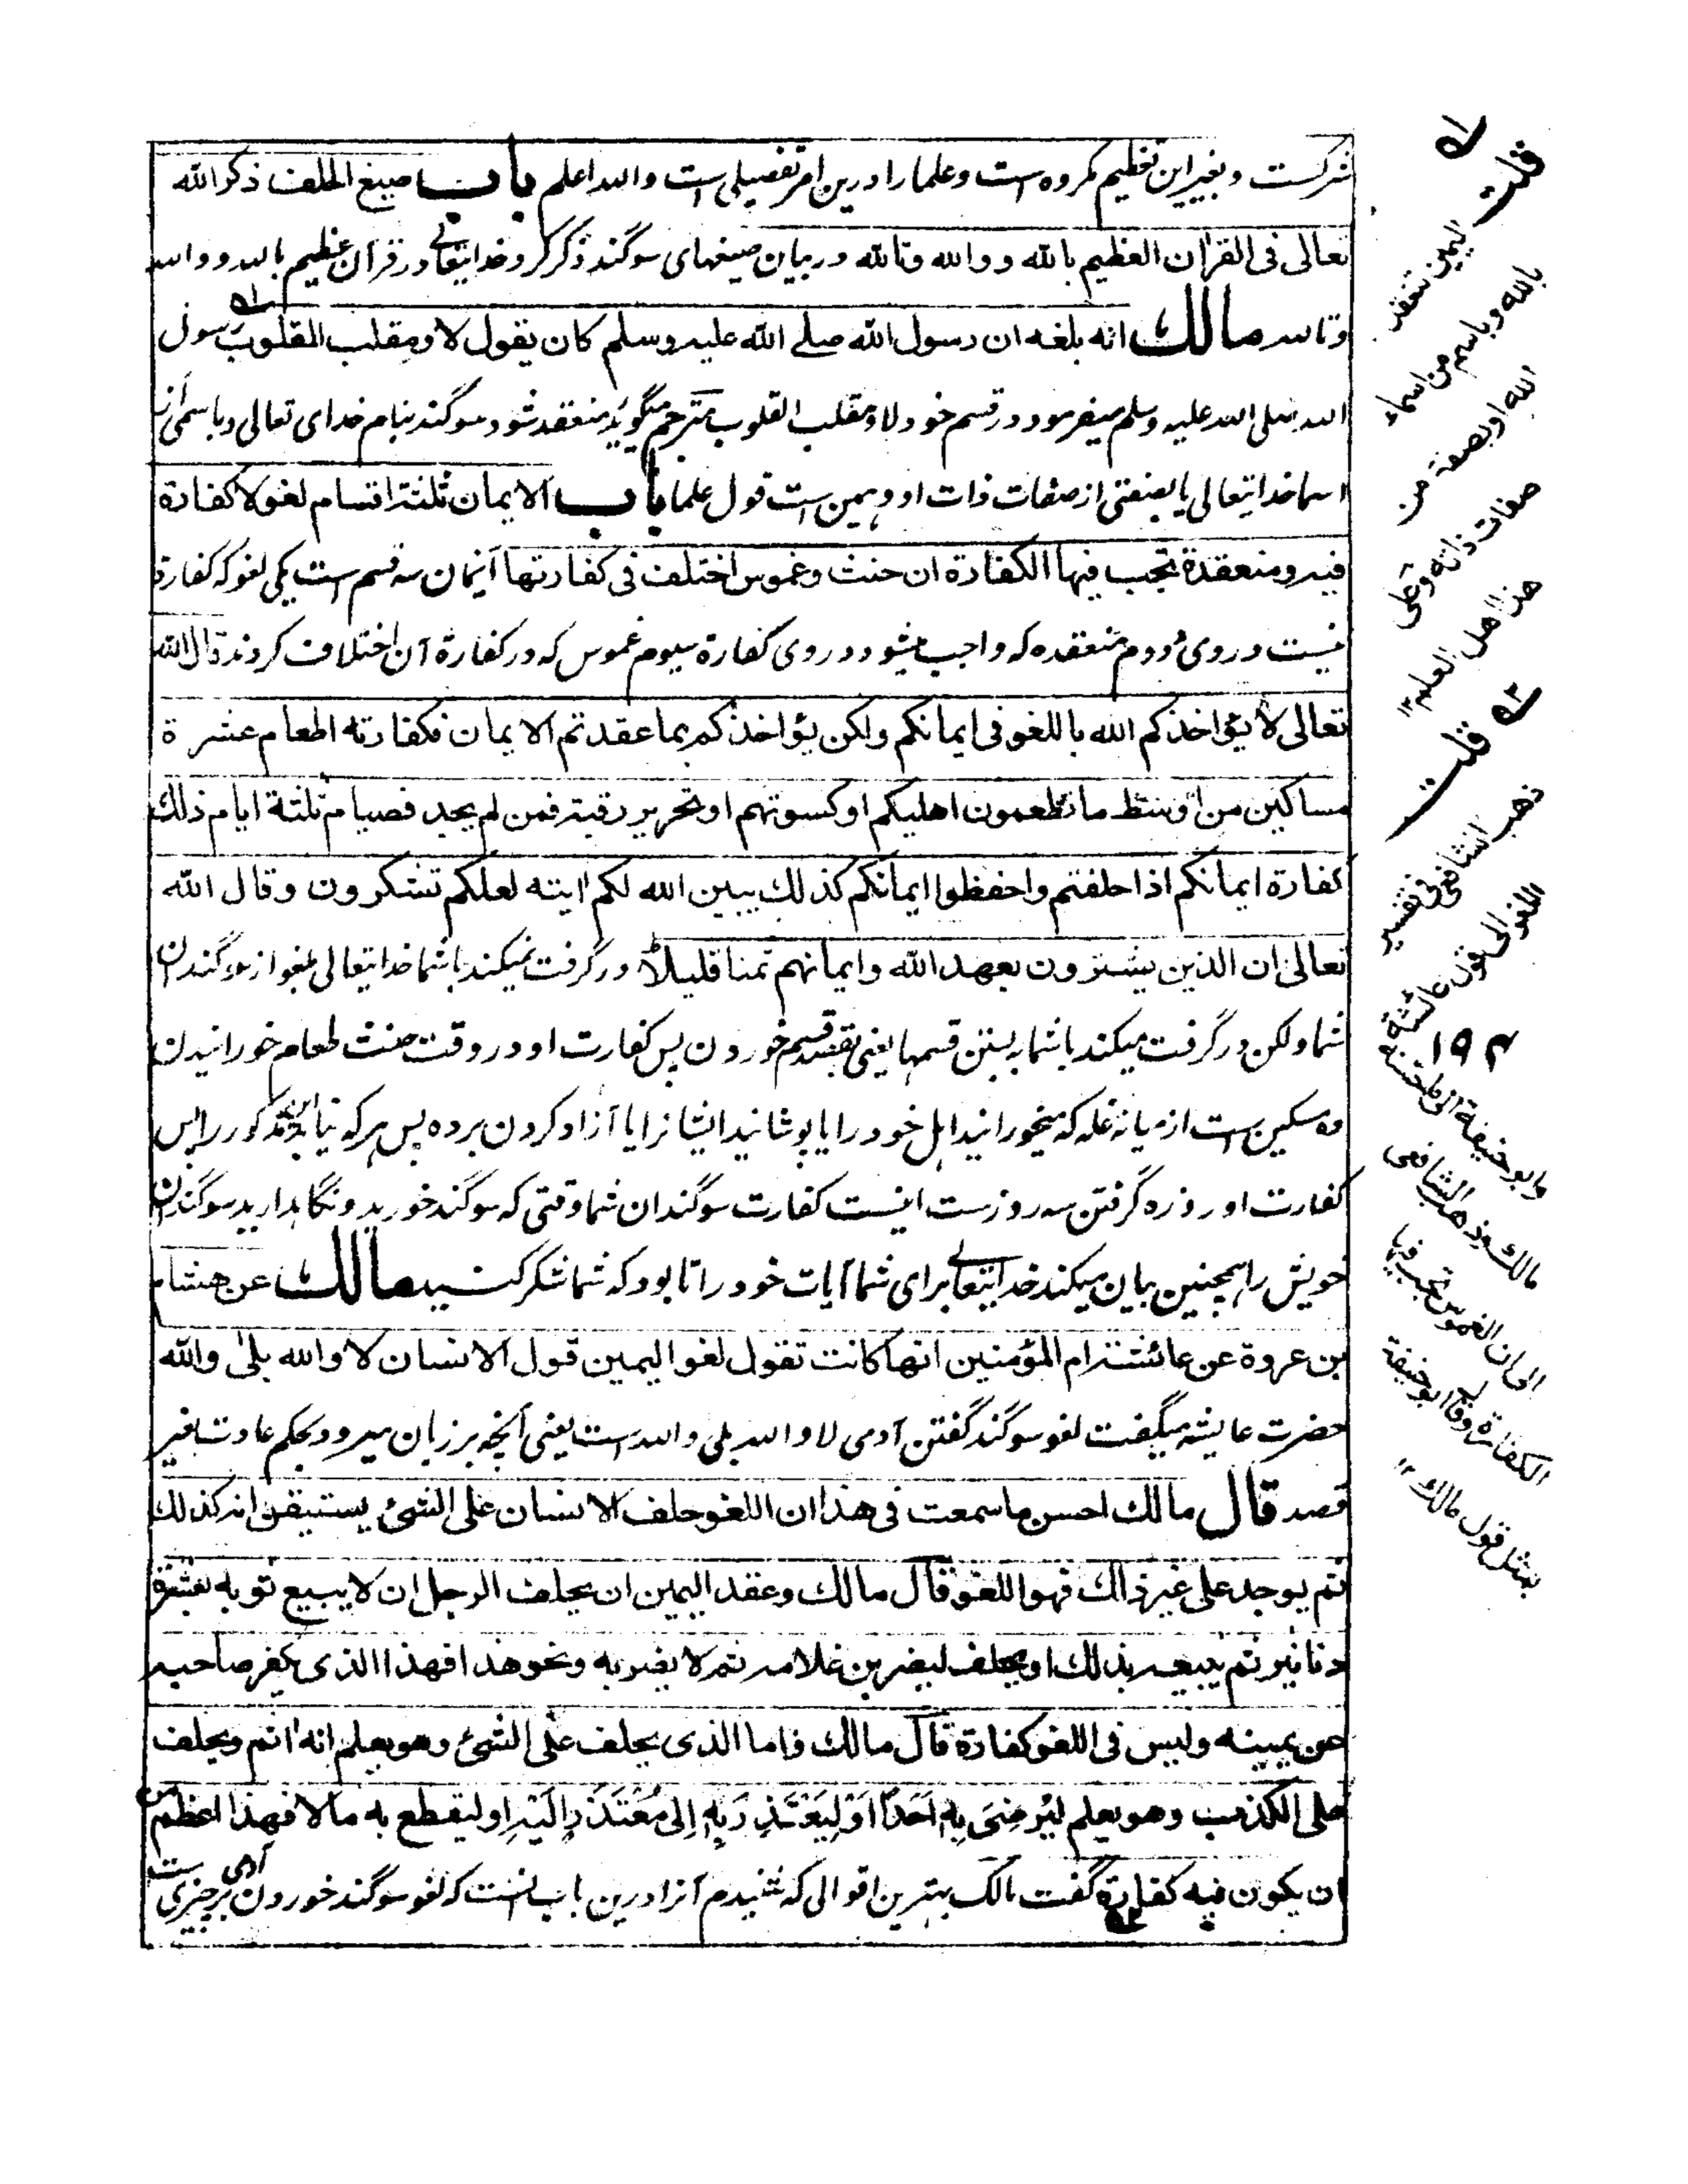 شرکست و بغیر این تعظیم مکروه است و علما را درین امر تفصیلی است والله اعلم باب صیغ الحلف ذکر الله
تعالی فی القرآن العظیم بالله و والله وتالله در بیان صیغهای سوگند ذکر کرد خدایتعالی در قرآن عظیم بالله و والله
وتالله مالك انه بلغه ان رسول الله صلے الله علیه وسلم کان یقول لا ومقلب القلوب رسول
الله صلی الله علیه وسلم میفرمود در قسم خود لا ومقلب القلوب مترجم میگوید منعقد شود سوگند بنام خدای تعالی و باسمی از
اسما خدایتعالی یا بصفتی از صفات ذات او و همین است قول علما باب الایمان ثلثة اقسام لغو لا کفارة
فیه ومنعقدة تجب فیها الکفارة ان حنث وغموس اختلف فی کفارتها ایمان سه قسم است یکی لغو که کفارة
نیست در وی دوم منعقده که واجب میشود در وی کفارة سیوم غموس که در کفارة آن اختلاف کردند قال الله
تعالی لا یؤاخذکم الله باللغو فی ایمانکم ولکن یؤاخذکم بما عقدتم الایمان فکفارته اطعام عشرة
مساکین من اوسط ما تطعمون اهلیکم او کسوتهم او تحریر رقبة فمن لم یجد فصیام ثلثة ایام ذلك
کفارة ایمانکم اذا حلفتم واحفظوا ایمانکم کذلك یبین الله لکم ایته لعلکم تشکرون وقال الله
تعالی ان الذین یشترون بعهد الله وایمانهم ثمنا قلیلا در گرفت نمیکند با شما خدایتعالی بلغو از سوگندان
شما ولکن در گرفت میکند با شما به بستن قسمها یعنی بقصد قسم خوردن پس کفارت او در وقت حنث طعام خورانیدن
ده مسکین است از میانه غله که میخورانید اهل خود را یا پوشانید ایشانرا یا آزاد کردن برده پس هر که نیابد این مذکور را پس
کفارت او روزه گرفتن سه روز ست اینست کفارت سوگندان شما وقتی که سوگند خورید و نگاهدارید سوگندان
خویش را همچنین بیان میکند خدایتعالی برای شما آیات خود را تا بود که شما شکر کنید مالك عن هشام
بن عروة عن عائشة ام المؤمنین انها کانت تقول لغو الیمین قول الانسان لا والله بلی والله
حضرت عایشه میگفت لغو سوگند گفتن آدمی لا والله بلی والله است یعنی آنچه بر زبان میرود بحکم عادت بغیر
قصد قال مالك احسن ما سمعت فی هذا ان اللغو حلف الانسان علی الشئ یستیقن انه کذلك
ثم یوجد علی غیر ذالك فهو اللغو قال مالك وعقد الیمین ان یحلف الرجل ان لا یبیع ثوبه بعشرة
دنانیر ثم یبیعه بذلك او یحلف لیضربن غلامه ثم لا یضربه ونحو هذا فهذا الذی یکفر صاحبه
عن یمینه ولیس فی اللغو کفارة قال مالك فاما الذی یحلف علی الشئ وهو یعلم انه اثم ویحلف
علی الکذب وهو یعلم لِیُرضِیَ بِه اَحَدًا اَوْ لِیَعْتَذِرَ بِهٖ اِلٰی مُعْتَذَرٍ اِلَیْهِ او لیقطع به مالا فهذا اعظم من
ان یکون فیه کفارة گفت مالک بهترین اقوالی که شنیدم آنرا درین باب اینست که لغو سوگند خوردن آدمی ست بر چیزی
قلت
الیمین تنعقد
بالله وباسم من اسماء
الله او بصفة من
صفات ذاته وعلی
هذا اهل العلم ۱۲
قلت
ذهب الشافعی فی تفسیر
اللغو الی قول عائشة
۱۹۴
وابو حنیفة الی ما استحسنه
مالك وذهب الشافعی
الی ان الغموس تجب فیها
الکفارة وقال ابو حنیفة
بمثل قول مالك ۱۲